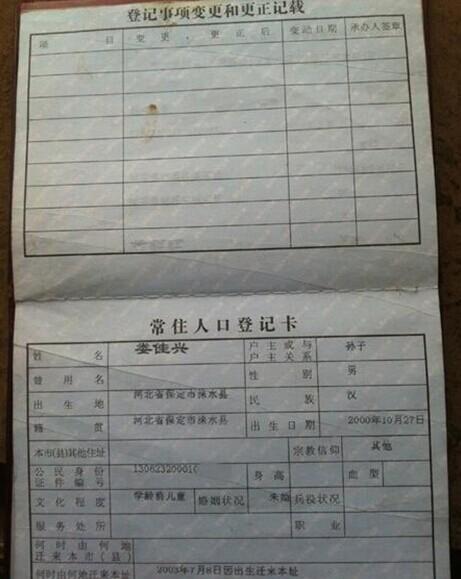 登记事项变更和更正记载
项 目 变更、更正后 变动日期 承办人签章
常住人口登记卡
姓名 娄佳兴 户主或与户主关系 孙子
曾用名 性别 男
出生地 河北省保定市涞水县 民族 汉
籍贯 河北省保定市涞水县 出生日期 2000年10月27日
本市(县)其他住址 宗教信仰 其他
公民身份证件编号 身高 血型
文化程度 学龄前儿童 婚姻状况 未婚 兵役状况
服务处所 职业
何时由何地迁来本市(县)
何时由何地迁来本址 2003年7月8日因出生迁来本址